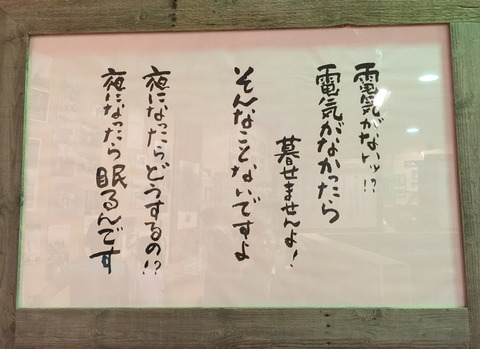 電気がないッ!?
電気がなかったら
暮せませんよ!
そんなことないですよ
夜になったらどうするの!?
夜になったら眠るんです